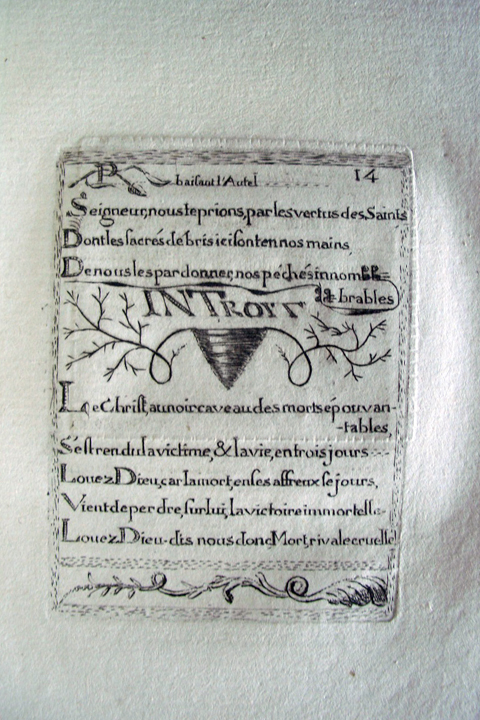 P baisant l'Autel 14
Seigneur, nous te prions, par les vertus des Saints
Dont les sacrés débris ici sont en nos mains,
De nous les pardonner, nos péchés innom
brables
INTROIT
Le Christ, au noir caveau des morts épouvan-
-tables,
S'est rendu la victime, & la vie, en trois jours
Louez Dieu, car la mort, en ses affreux séjours,
Vient de perdre, sur lui, la victoire immortelle
Louez Dieu - dis nous donc Mort, rivale cruelle